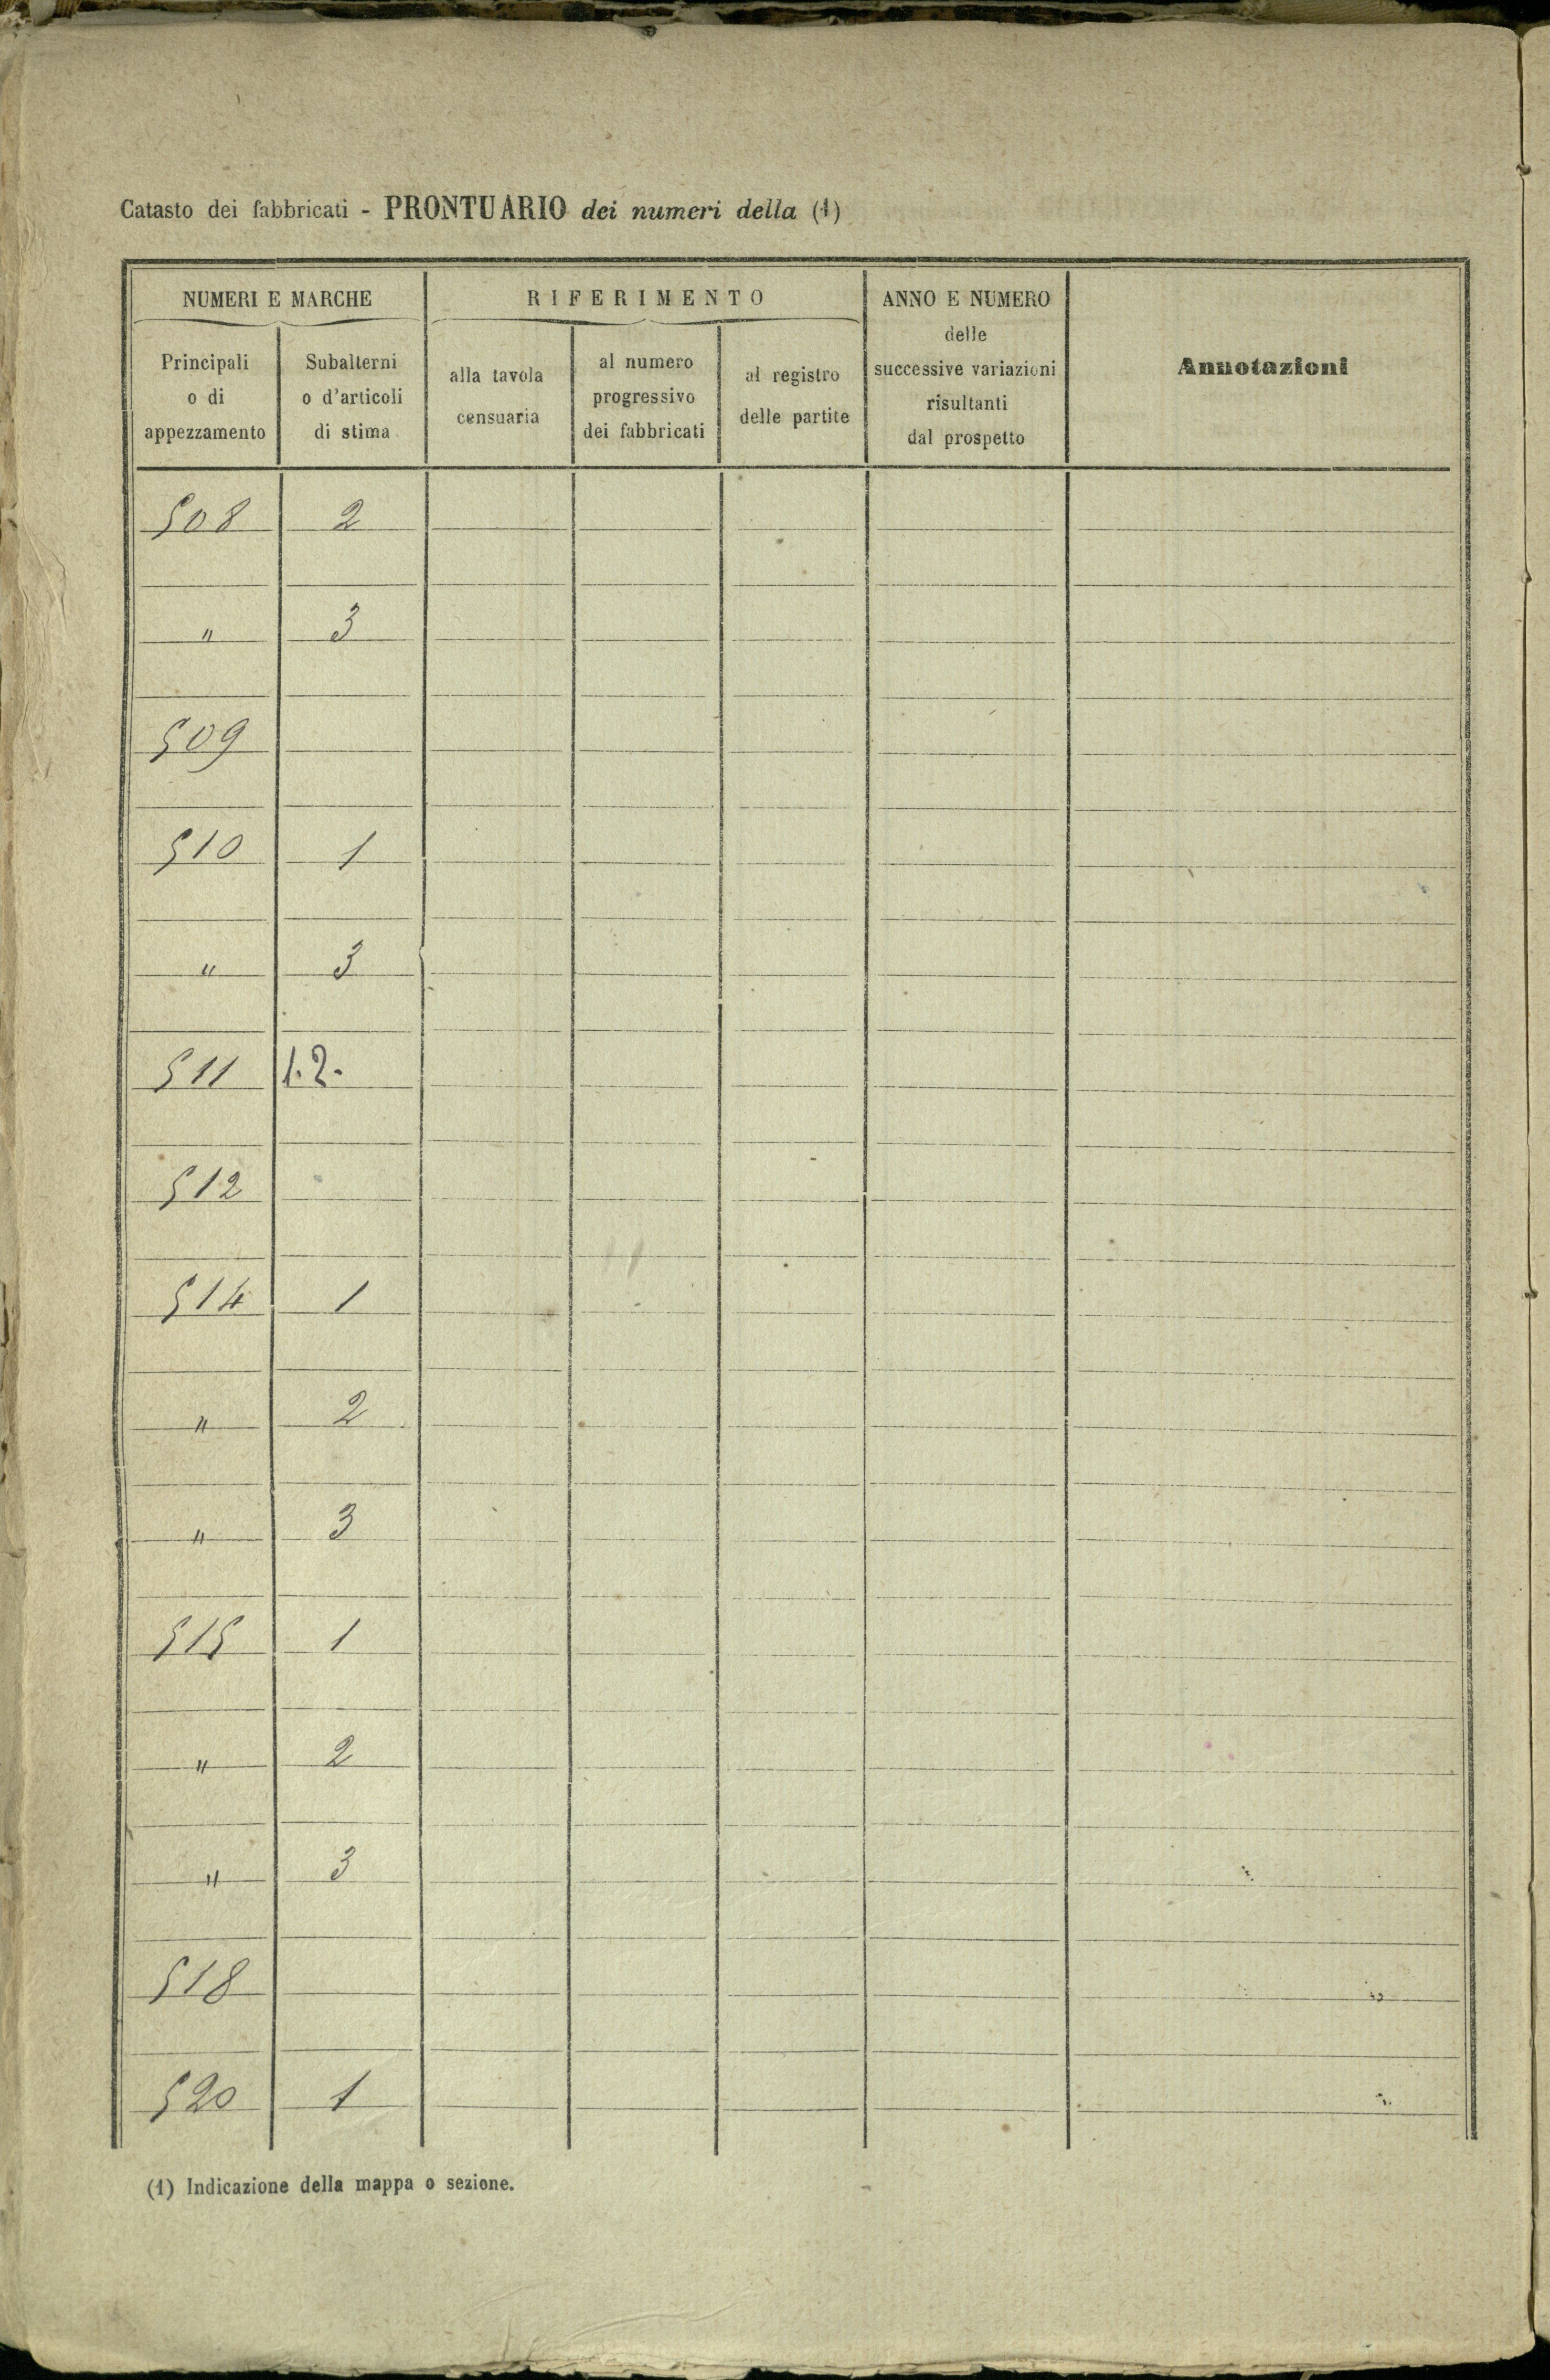 Catasto dei fabbricati - PRONTUARIO dei numeri della (1)
NUMERI E MARCHE
Principali
o di
appezzamento
Subalterni
o d'articoli
di stima
RIFERIMENTO
alla tavola
censuaria
al numero
progressivo
dei fabbricati
al registro
delle partite
ANNO E NUMERO
delle
successive variazioni
risultanti
dal prospetto
Annotazioni
508 2
" 3
509
510 1
" 3
511 1.2.
512
514 1
" 2
" 3
515 1
" 2
" 3
518
520 1
(1) Indicazione della mappa o sezione.